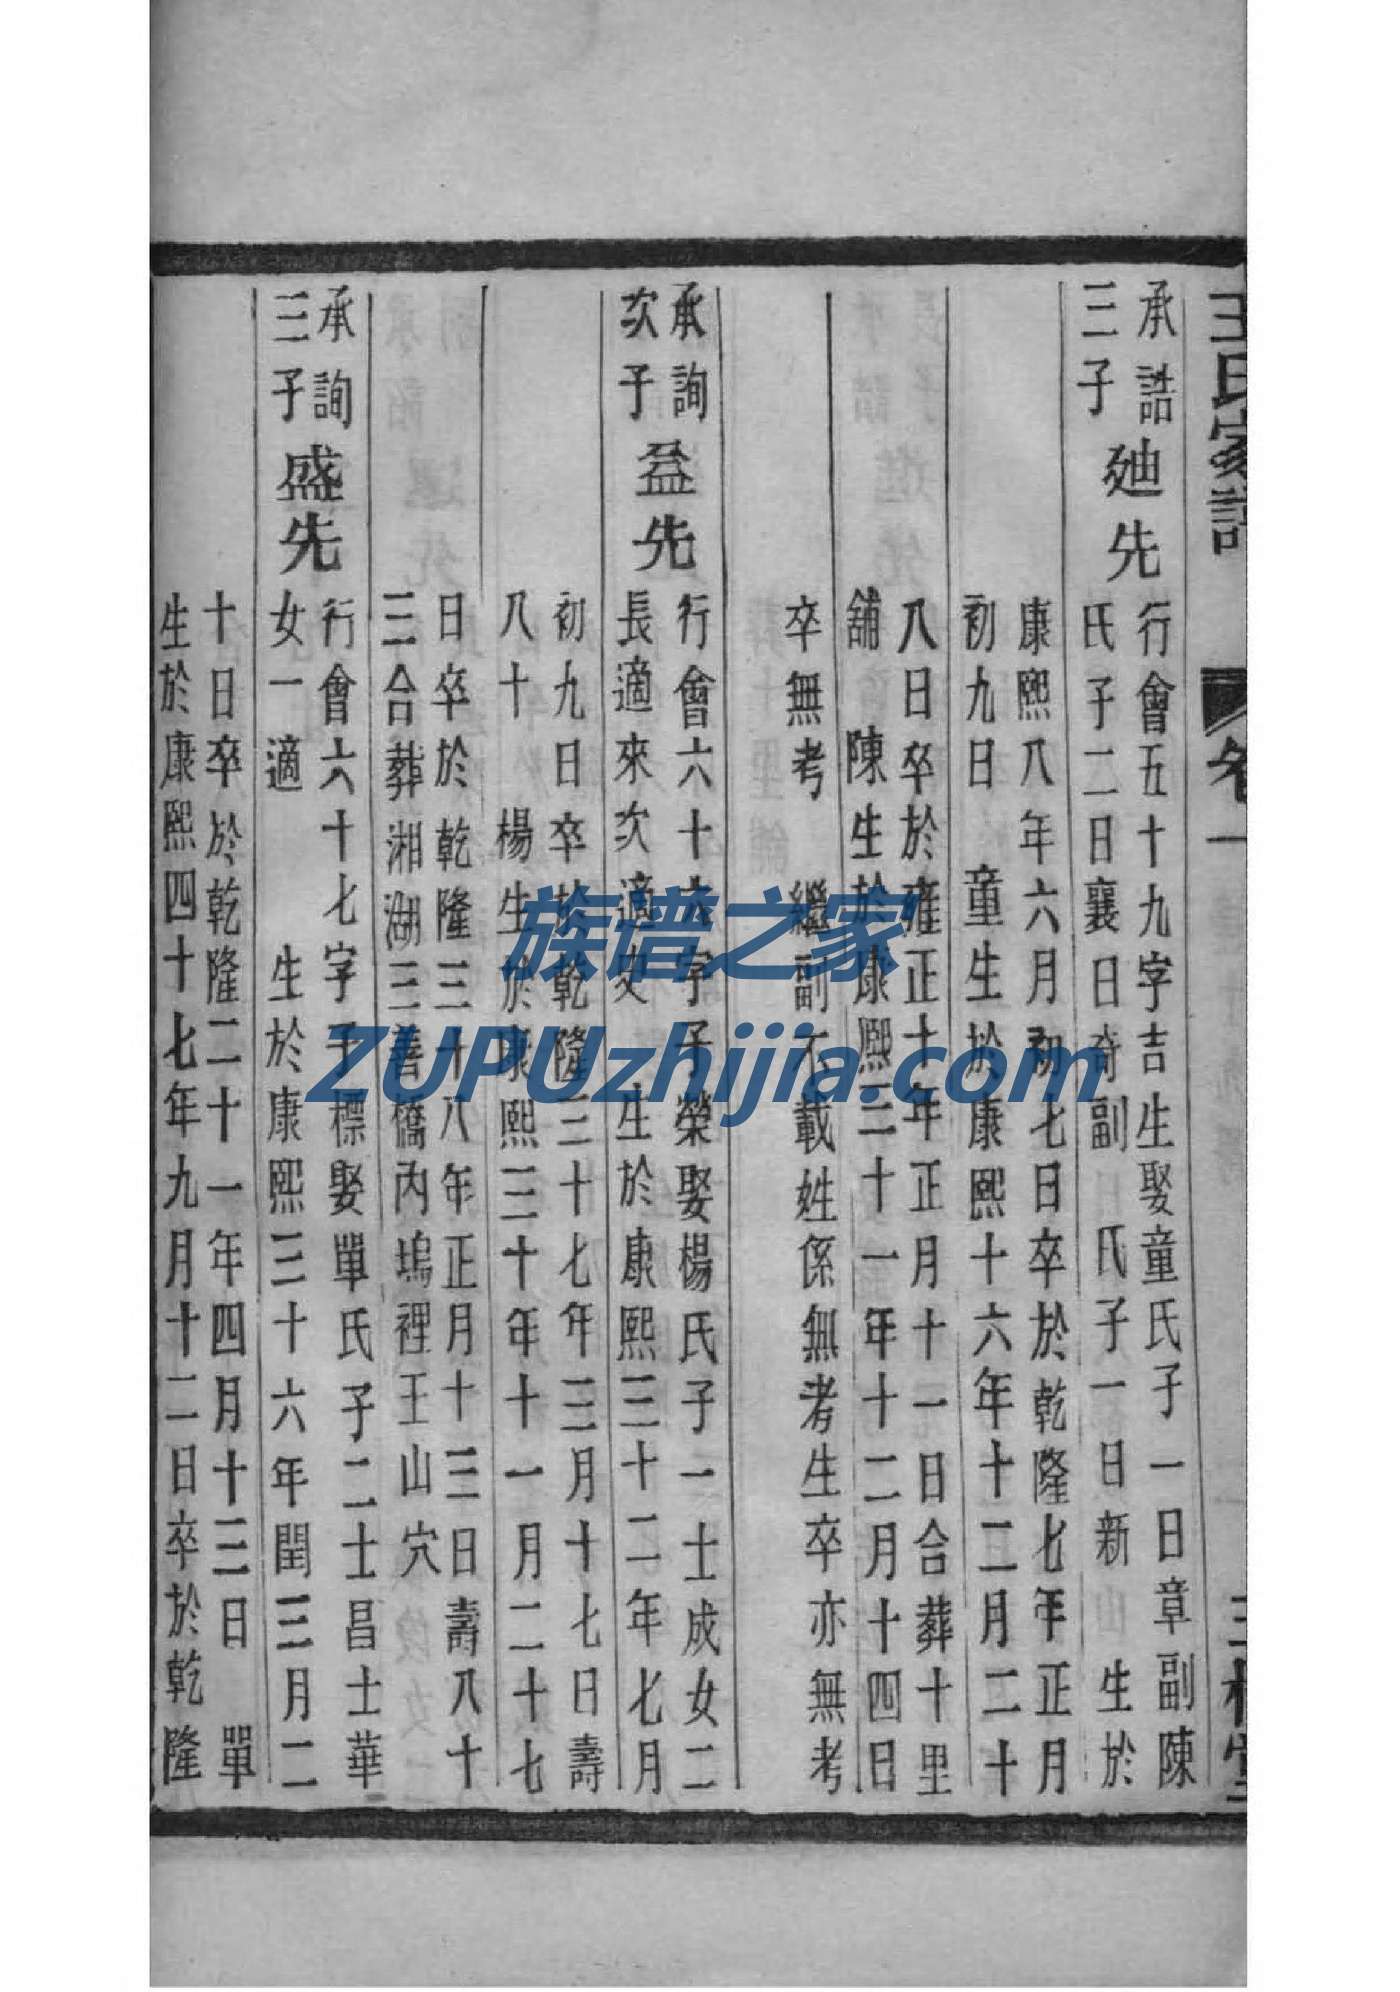 王氏家譜
卷一
三槐堂
承誥
三子
廸先
行會五十九字吉生娶童氏子一日章副陳
氏子二日襄日奇副 氏子一日新 生於
康熙八年六月初七日卒於乾隆七年正月
初九日 童生於康熙十六年十二月二十
八日卒於雍正十年正月十一日合葬十里
舖 陳生於康熙三十一年十二月十四日
卒無考 繼副不載姓係無考生卒亦無考
承詢
次子
益先
行會六十六字子榮娶楊氏子一士成女二
長適來次適史 生於康熙三十二年七月
初九日卒於乾隆三十七年三月十七日壽
八十 楊生於康熙三十年十一月二十七
日卒於乾隆三十八年正月十三日壽八十
三合葬湘湖三善橋內塢裡王山穴
承詢
三子
盛先
行會六十七字子標娶單氏子二士昌士華
女一適 生於康熙三十六年閏三月二
十日卒於乾隆二十一年四月十三日 單
生於康熙四十七年九月十二日卒於乾隆
族谱之家
ZUPUzhijia.com